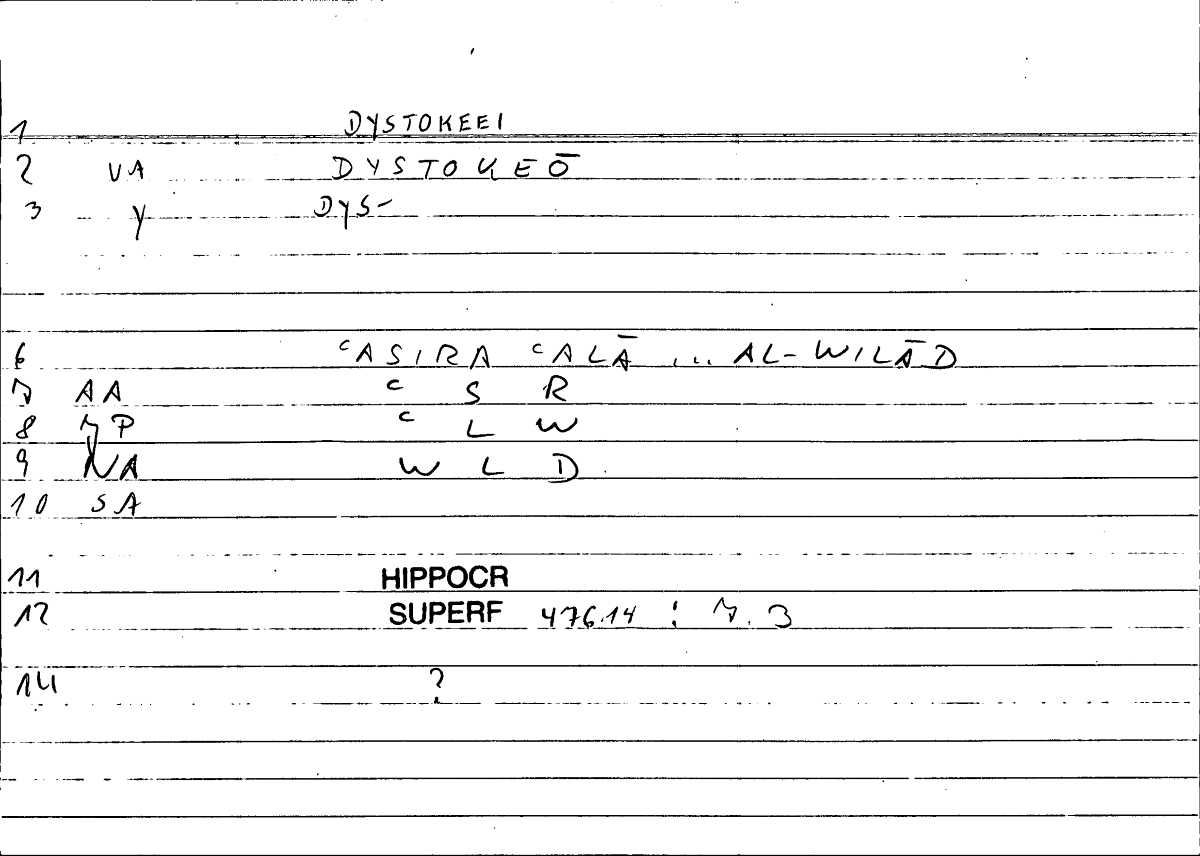 1 DYSTOKEEI
2 VA DYSTOKEŌ
3 Y DYS-
6 ʿASIRA ʿALĀ ... AL-WILĀD
7 AA ʿ S R
8 P ʿ L W
9 NA W L D
10 SA
11 HIPPOCR
12 SUPERF 476.14 : 7.3
14 ?